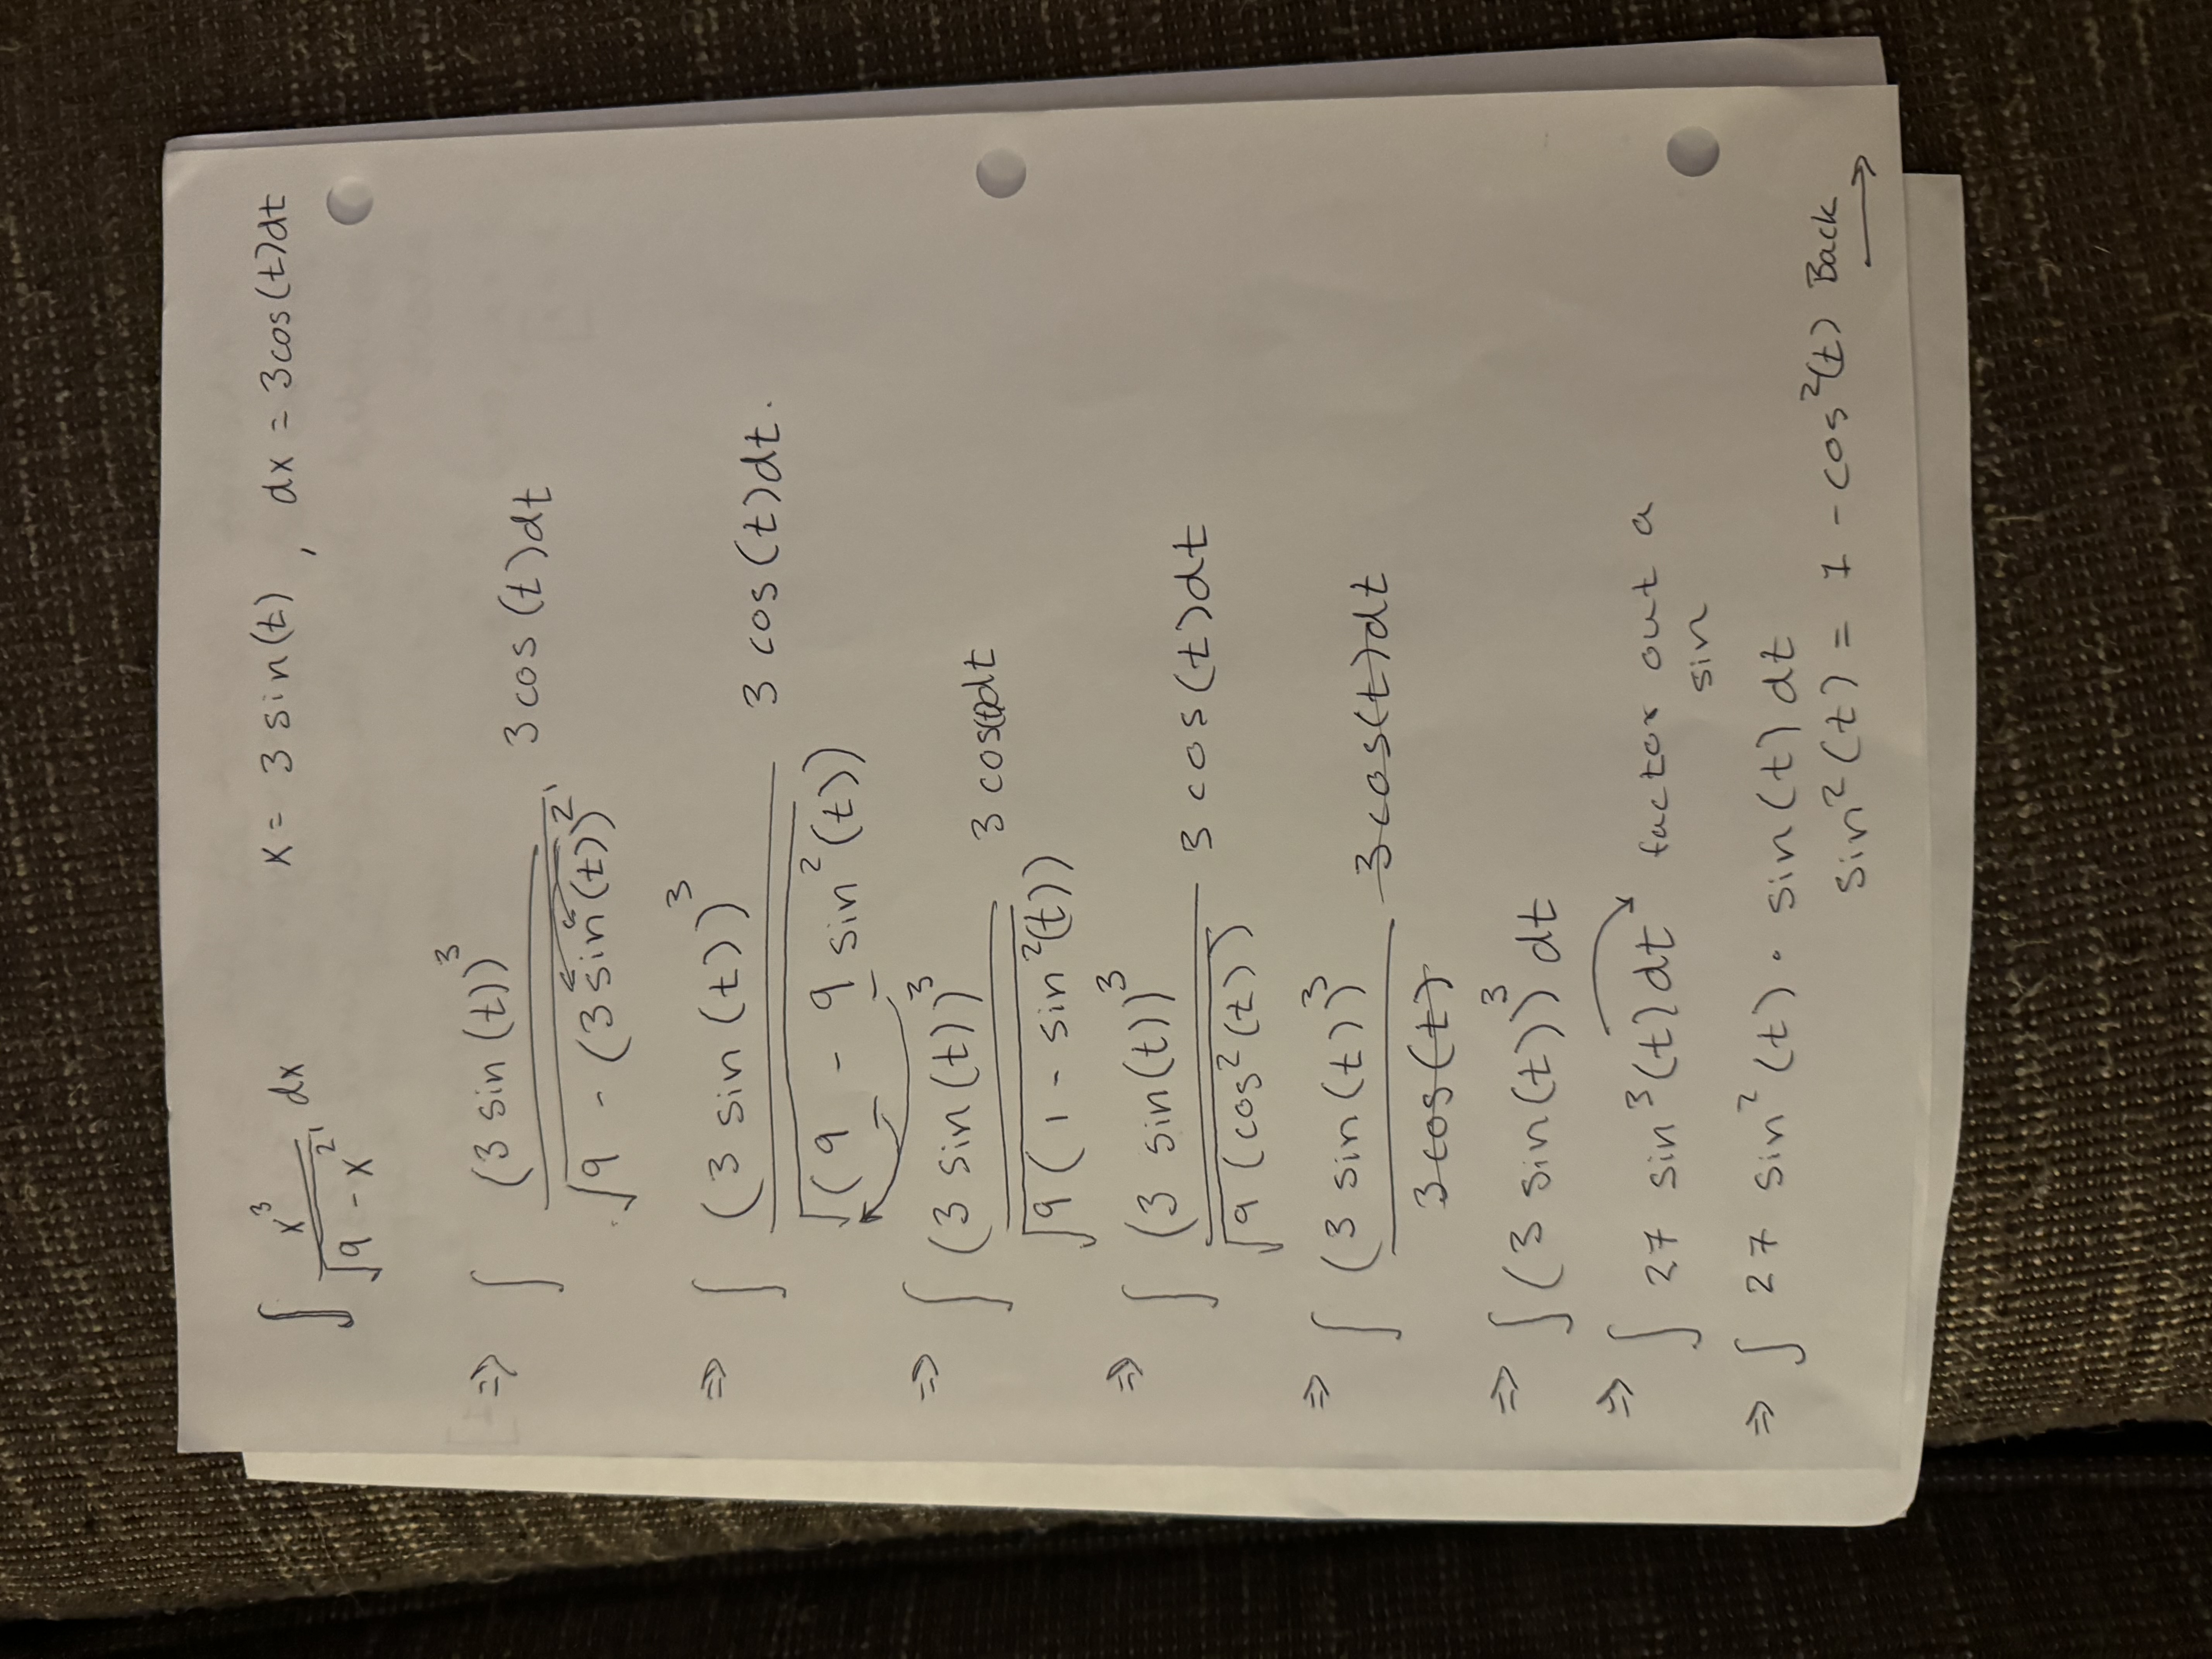 ∫ x³/√(9 - x²) dx    x = 3 sin(t) , dx = 3cos(t)dt
⇒ ∫ (3 sin(t))³/√(9 - (3 sin(t))²) 3 cos(t)dt
⇒ ∫ (3 sin(t))³/√((9 - 9 sin²(t))) 3 cos(t)dt.
⇒ ∫ (3 sin(t))³/√(9(1 - sin²(t))) 3 cos(t)dt
⇒ ∫ (3 sin(t))³/√(9(cos²(t))) 3 cos(t)dt
⇒ ∫ (3 sin(t))³/3cos(t) 3cos(t)dt
⇒ ∫ (3 sin(t))³ dt
⇒ ∫ 27 sin³(t)dt factor out a
sin
⇒ ∫ 27 sin²(t) · sin(t) dt
sin²(t) = 1 - cos²(t) Back →